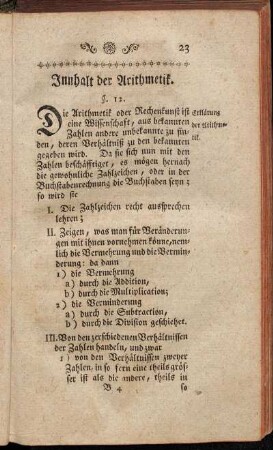 23
Innhalt der Arithmetik.
§. 12.
Die Arithmetik oder Rechenkunst ist
eine Wissenschaft, aus bekannten
Zahlen andere unbekannte zu fin-
den, deren Verhältniß zu den bekannten
gegeben wird. Da sie sich nun mit den
Zahlen beschäfftiget, es mögen hernach
die gewöhnliche Zahlzeichen, oder in der
Buchstabenrechnung die Buchstaben seyn;
so wird sie
Erklärung
der Arithme-
tik.
I. Die Zahlzeichen recht aussprechen
lehren;
II. Zeigen, was man für Veränderun-
gen mit ihnen vornehmen könne, nem-
lich die Vermehrung und die Vermin-
derung: da dann
1) die Vermehrung
a) durch die Addition,
b) durch die Multiplication;
2) die Verminderung
a) durch die Subtraction,
b) durch die Division geschiehet.
III. Von den verschiedenen Verhältnissen
der Zahlen handeln, und zwar
1) von den Verhältnissen zweyer
Zahlen, in so fern eine theils grös-
ser ist als die andere, theils in
B 4 so